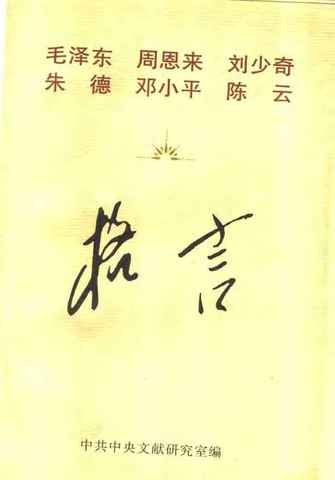 毛泽东 周恩来 刘少奇
朱德 邓小平 陈云
格言
中共中央文献研究室编